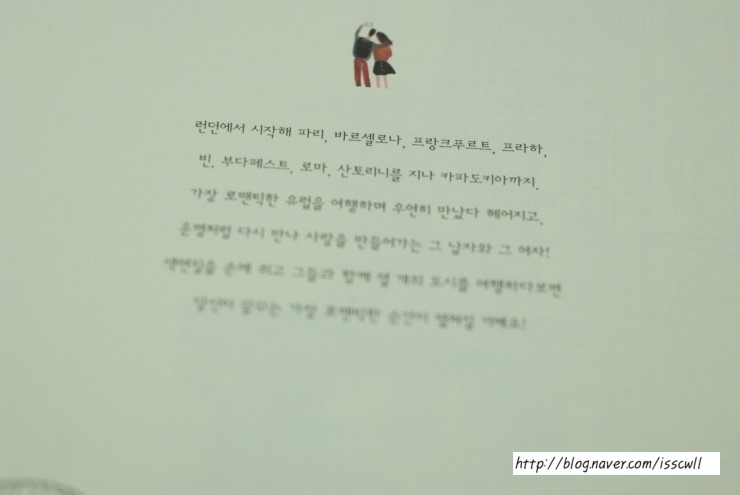 런던에서 시작해 파리, 바르셀로나, 프랑크푸르트, 프라하,
빈, 부다페스트, 로마, 산토리니를 지나 카파도키아까지.
가장 로맨틱한 유럽을 여행하며 우연히 만났다 헤어지고,
운명처럼 다시 만나 사랑을 만들어가는 그 남자와 그 여자!
색연필을 손에 쥐고 그들과 함께 열 개의 도시를 여행하다보면
당신이 꿈꾸는 가장 로맨틱한 순간이 펼쳐질 거예요!
http://blog.naver.com/isscwll